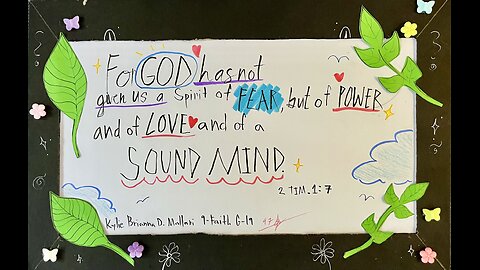 For GOD has not
given us a Spirit of FEAR, but of POWER
and of LOVE and of a
SOUND MIND.
2 TIM. 1:7
Kylie Brianna D. Mallari 9-Faith G-19